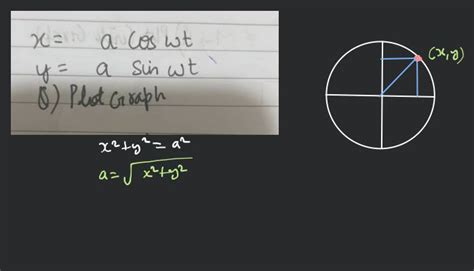 x = a cos ωt
y = a sin ωt
Q) Plot Graph
(x,y)
x²+y²=a²
a=√x²+y²